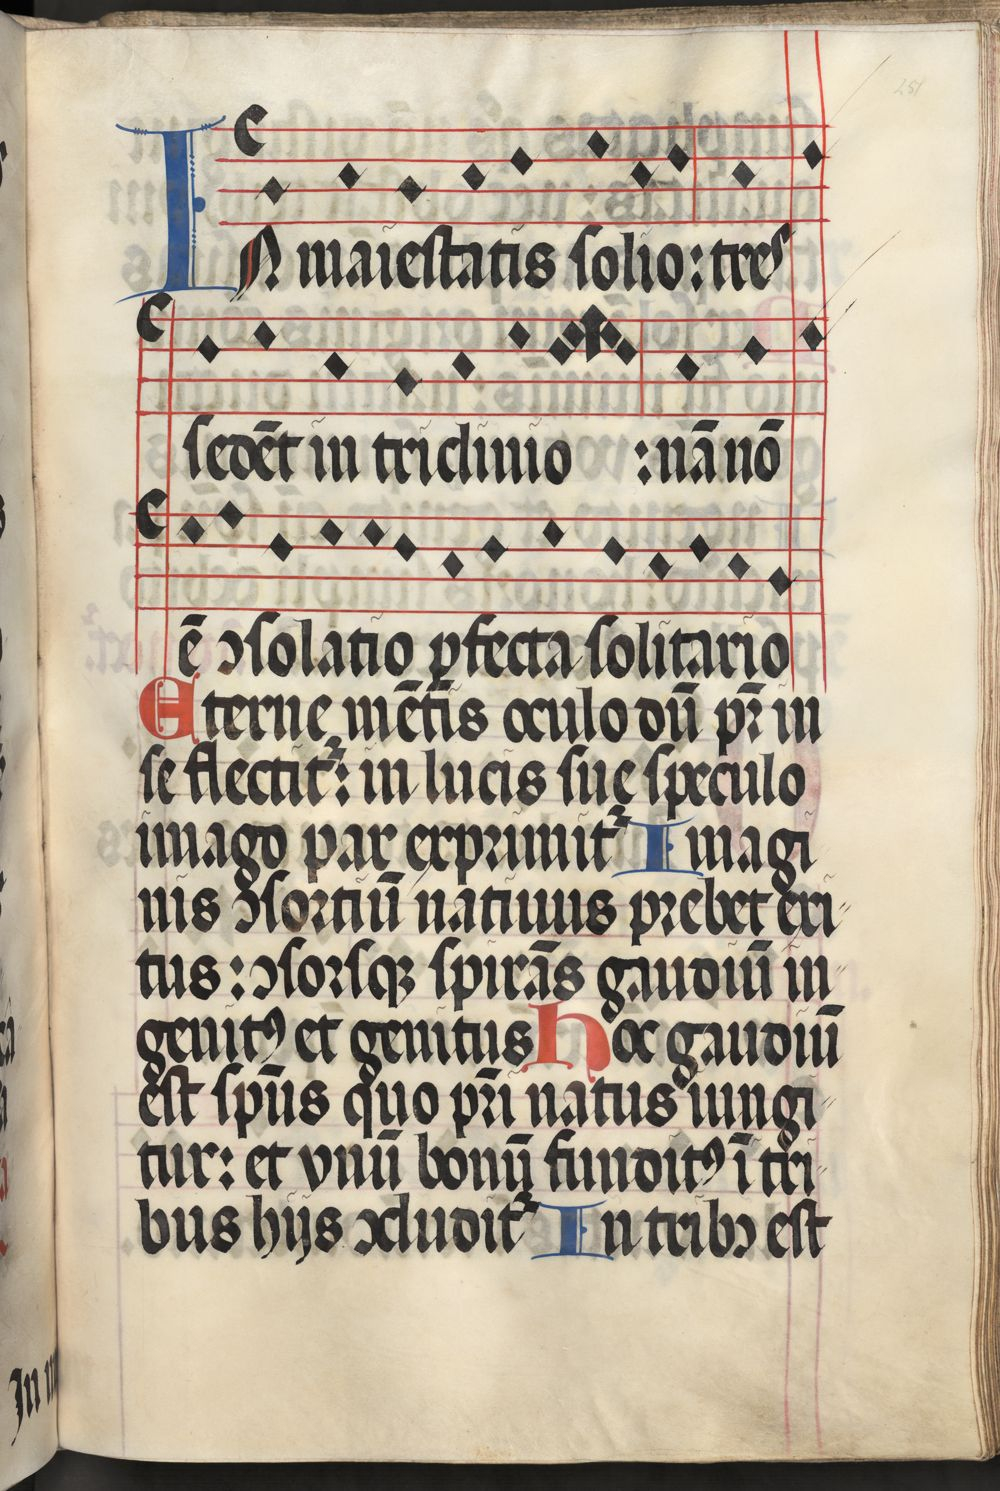 251
IN maiestatis solio: tres
sedēt in triclinio : nā nō
ē ɔsolatio ꝑfecta solitario
Eterne mētis oculo dū pr̄ in
se flectit᷑: in lucis sue speculo
imago par exprimit᷑ Imagi
nis ɔsortiū natiuus prebet exi-
tus: ɔsorsqꝫ spirās gaudiū in-
genitꝰ et genitus Hoc gaudiū
est spūs quo pr̄i natus iungi-
tur: et vnū bonū funditꝰ ī tri-
bus hijs ɔcludit᷑ In tribꝫ est
In